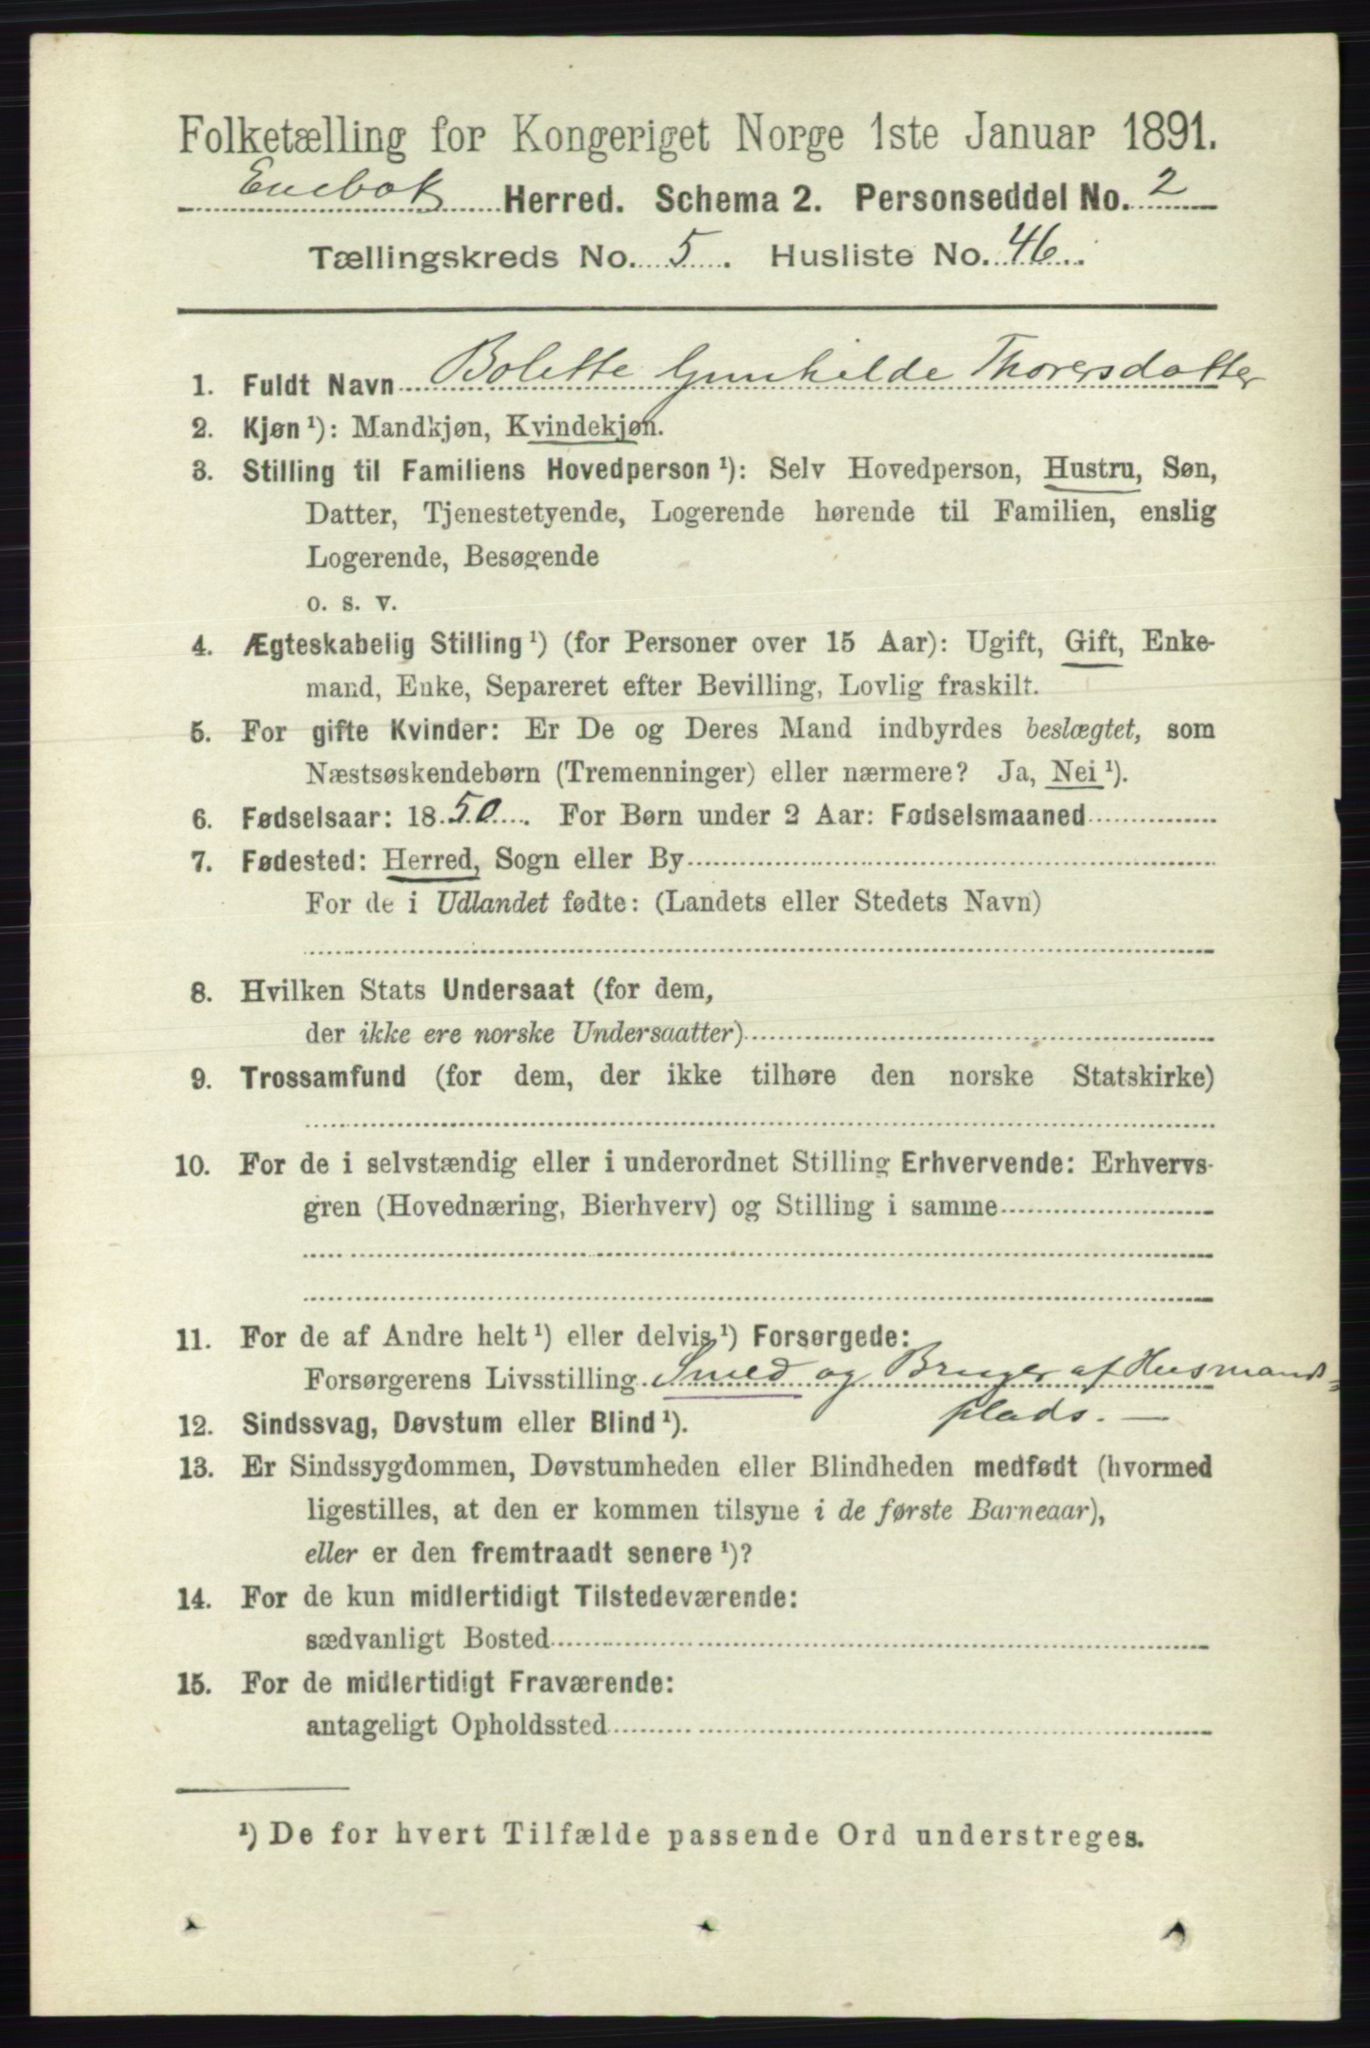 Folketælling for Kongeriget Norge 1ste Januar 1891.
Enebak Herred. Schema 2. Personseddel No. 2
Tællingskreds No. 5. Husliste No. 46.
1. Fuldt Navn Bolette Gunhilde Thorersdatter
2. Kjøn¹): Mandkjøn, Kvindekjøn.
3. Stilling til Familiens Hovedperson¹): Selv Hovedperson, Hustru, Søn,
Datter, Tjenestetyende, Logerende hørende til Familien, enslig
Logerende, Besøgende
o. s. v.
4. Ægteskabelig Stilling¹) (for Personer over 15 Aar): Ugift, Gift, Enke-
mand, Enke, Separeret efter Bevilling, Lovlig fraskilt.
5. For gifte Kvinder: Er De og Deres Mand indbyrdes beslægtet, som
Næstsøskendebørn (Tremenninger) eller nærmere? Ja, Nei¹).
6. Fødselsaar: 1850. For Børn under 2 Aar: Fødselsmaaned
7. Fødested: Herred, Sogn eller By
For de i Udlandet fødte: (Landets eller Stedets Navn)
8. Hvilken Stats Undersaat (for dem,
der ikke ere norske Undersaatter)
9. Trossamfund (for dem, der ikke tilhøre den norske Statskirke)
10. For de i selvstændig eller i underordnet Stilling Erhvervende: Erhvervs-
gren (Hovednæring, Bierhverv) og Stilling i samme
11. For de af Andre helt¹) eller delvis¹) Forsørgede:
Forsørgerens Livsstilling Smed og Bruger af Husmands-
plads. —
12. Sindssvag, Døvstum eller Blind¹).
13. Er Sindssygdommen, Døvstumheden eller Blindheden medfødt (hvormed
ligestilles, at den er kommen tilsyne i de første Barneaar),
eller er den fremtraadt senere¹)?
14. For de kun midlertidigt Tilstedeværende:
sædvanligt Bosted
15. For de midlertidigt Fraværende:
antageligt Opholdssted
¹) De for hvert Tilfælde passende Ord understreges.